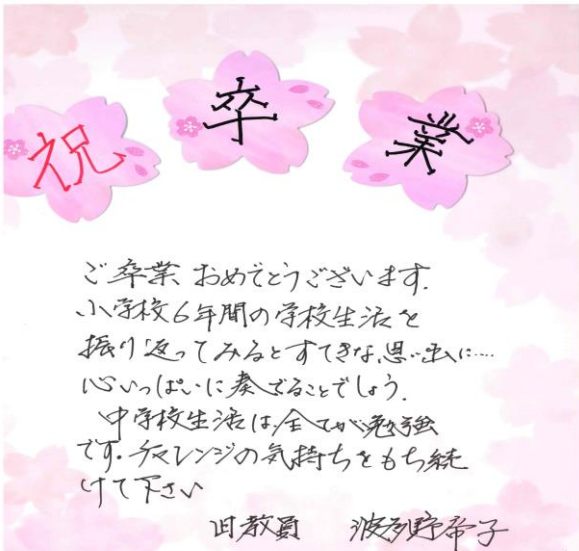 祝 卒 業
ご卒業、おめでとうございます.
小学校6年間の学校生活を
振り返ってみるとすてきな思い出に……
心いっぱいに奏でることでしょう.
中学校生活は、全てが勉強
です。チャレンジの気持ちをもち続
けて下さい
旧教員 波多野希子